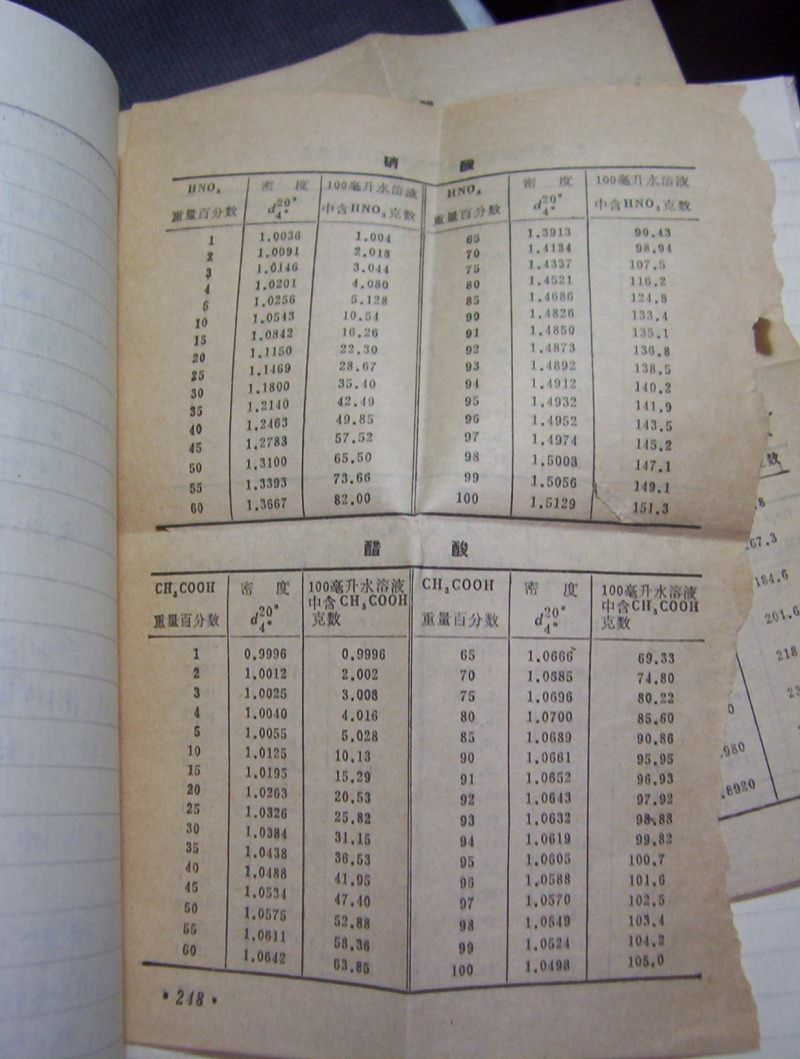 硝 酸
HNO₃ 密 度 100毫升水溶液 HNO₃ 密 度 100毫升水溶液
重量百分数 d20°4° 中含HNO₃克数 重量百分数 d20°4° 中含HNO₃克数
1 1.0036 1.004 65 1.3913 90.43
2 1.0091 2.018 70 1.4134 98.94
3 1.0146 3.044 75 1.4337 107.5
4 1.0201 4.080 80 1.4521 116.2
5 1.0256 5.128 85 1.4686 124.8
10 1.0543 10.54 90 1.4826 133.4
15 1.0842 16.26 91 1.4850 135.1
20 1.1150 22.30 92 1.4873 136.8
25 1.1469 28.67 93 1.4892 138.5
30 1.1800 35.40 94 1.4912 140.2
35 1.2140 42.49 95 1.4932 141.9
40 1.2463 49.85 96 1.4952 143.5
45 1.2783 57.52 97 1.4974 145.2
50 1.3100 65.50 98 1.5008 147.1
55 1.3393 73.66 99 1.5056 149.1
60 1.3667 82.00 100 1.5129 151.3
醋 酸
CH₃COOH 密 度 100毫升水溶液 CH₃COOH 密 度 100毫升水溶液
中含CH₃COOH 中含CH₃COOH
重量百分数 d20°4° 克数 重量百分数 d20°4° 克数
1 0.9996 0.9996 65 1.0666 69.33
2 1.0012 2.002 70 1.0685 74.80
3 1.0025 3.008 75 1.0696 80.22
4 1.0040 4.016 80 1.0700 85.60
5 1.0055 5.028 85 1.0689 90.86
10 1.0125 10.13 90 1.0661 95.95
15 1.0195 15.29 91 1.0652 96.93
20 1.0263 20.53 92 1.0643 97.92
25 1.0326 25.82 93 1.0632 98.88
30 1.0384 31.15 94 1.0619 99.82
35 1.0438 36.53 95 1.0605 100.7
40 1.0488 41.95 96 1.0588 101.6
45 1.0534 47.40 97 1.0570 102.5
50 1.0575 52.88 98 1.0549 103.4
55 1.0611 58.36 99 1.0524 104.2
60 1.0642 63.85 100 1.0498 105.0
• 248 •
克数
67.3
184.6
201.6
218
.980
.8920